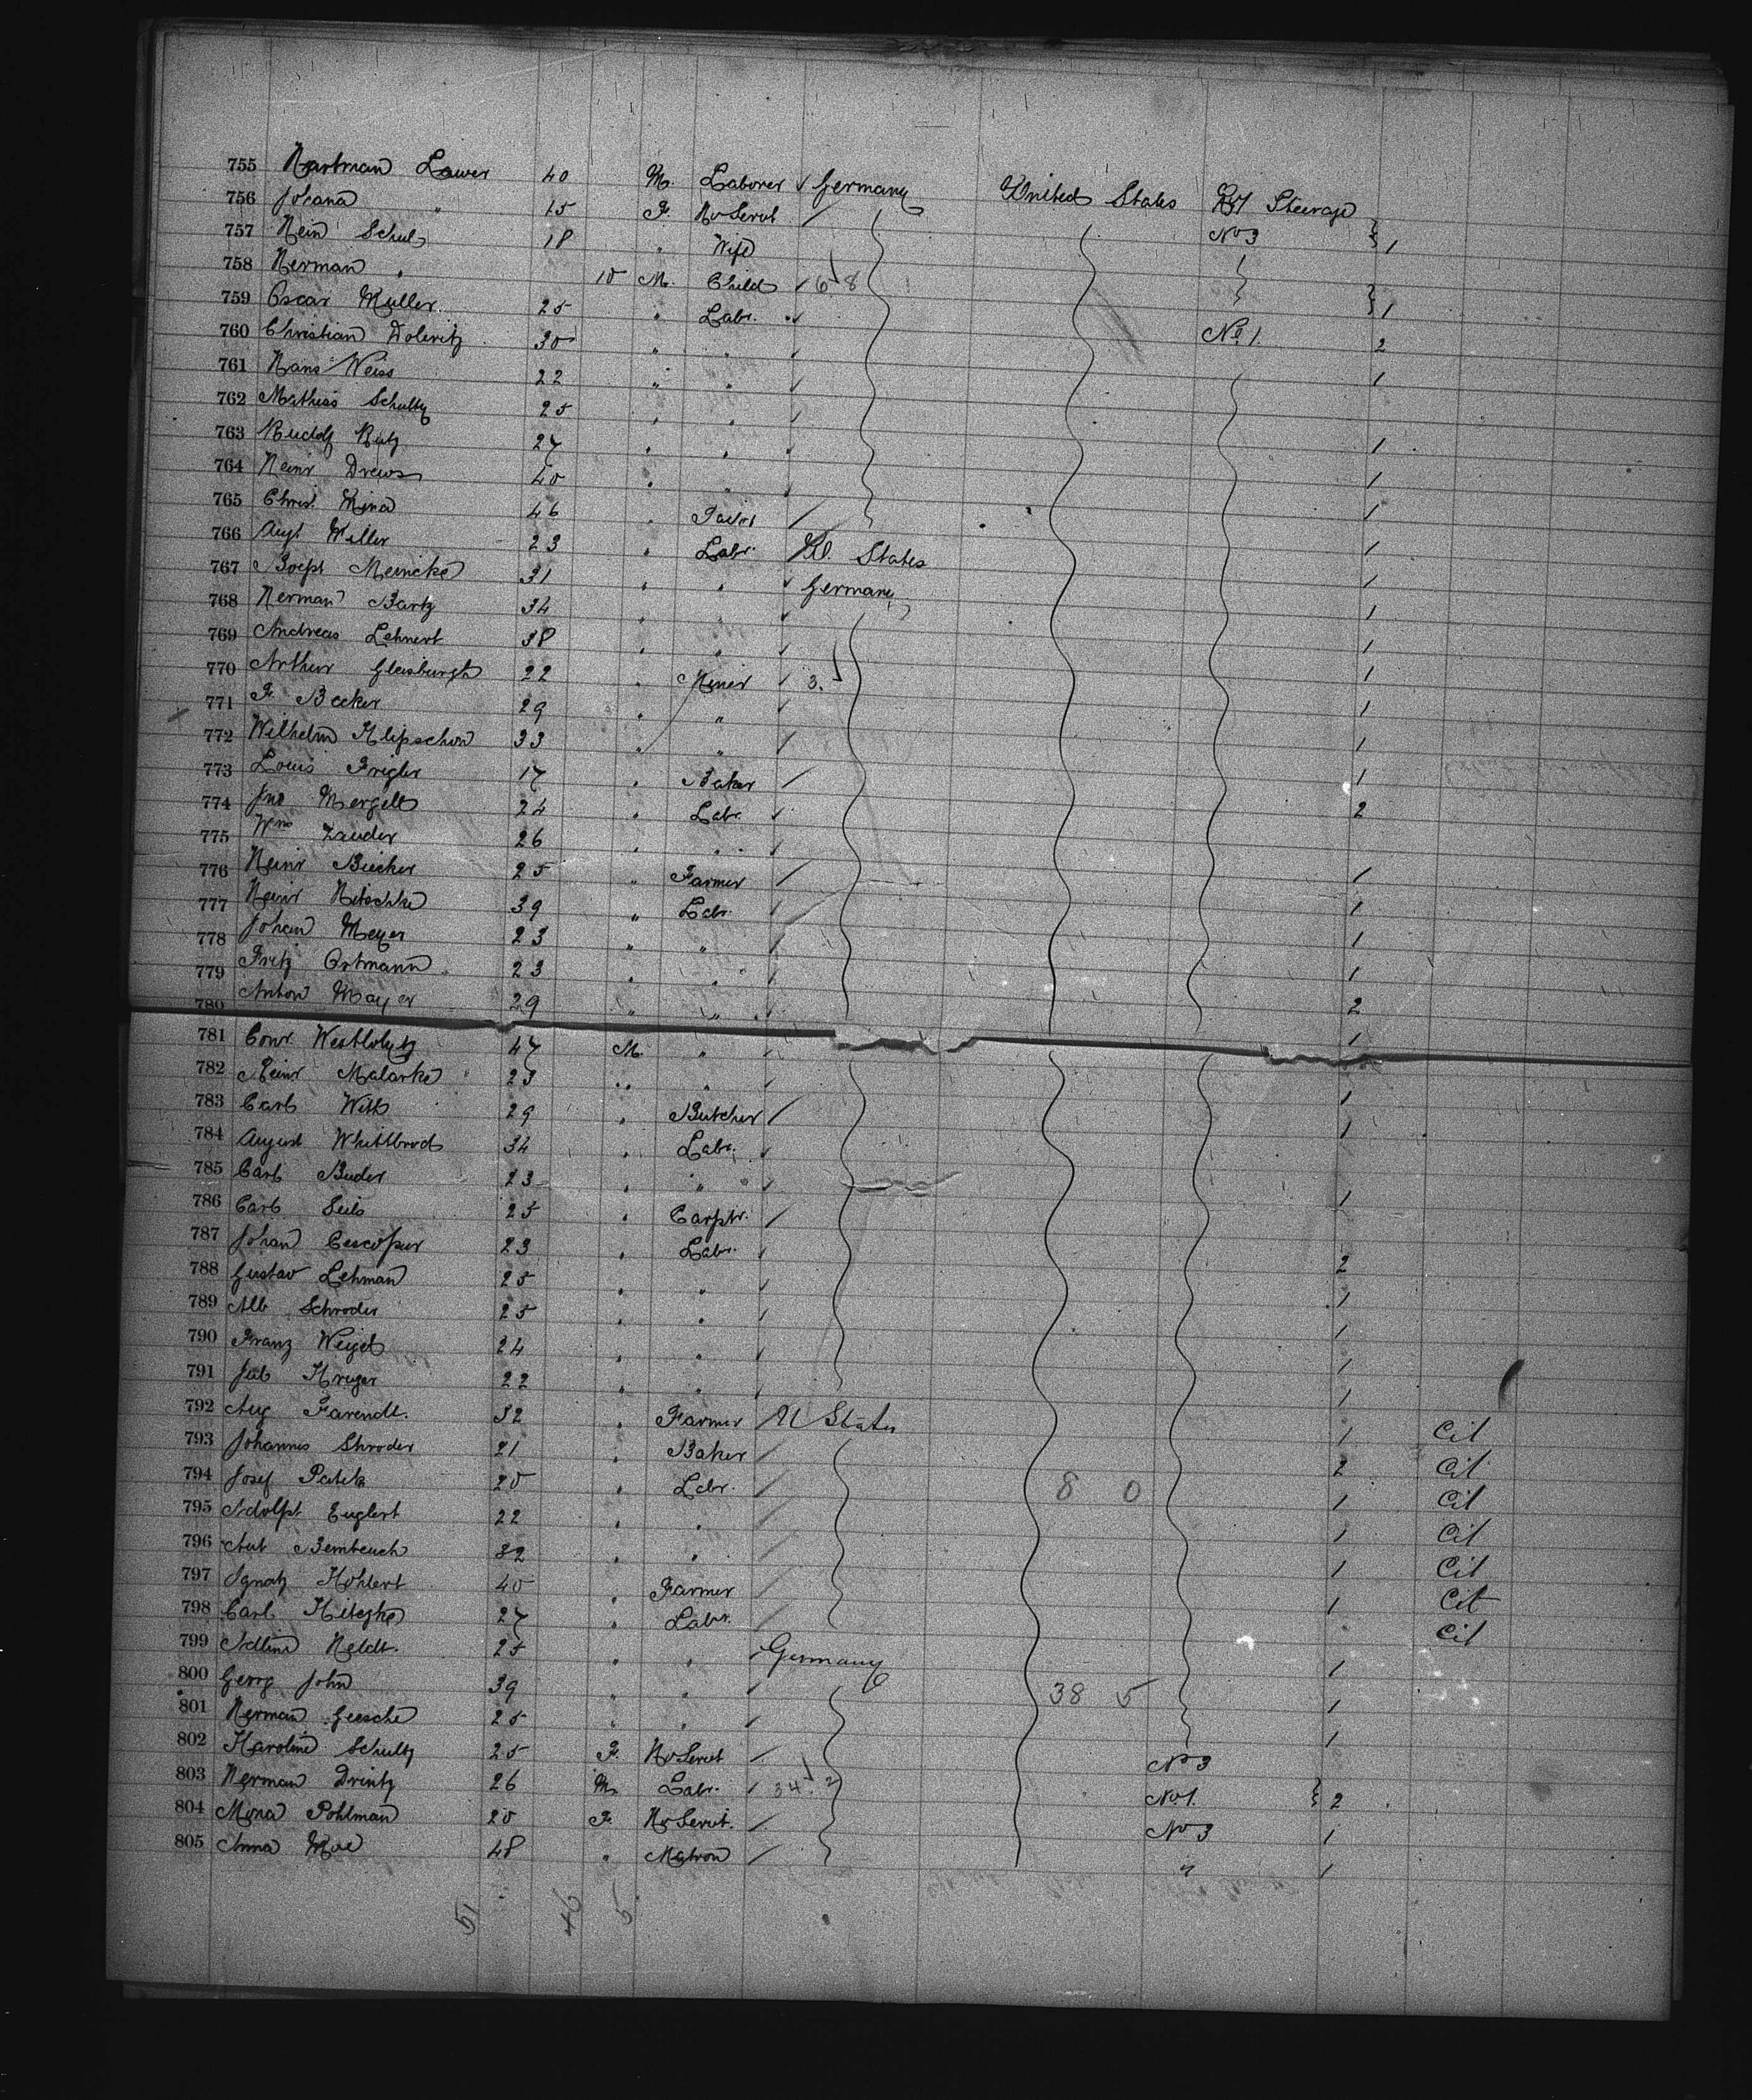 755 Hartman Lawer 40 M. Laborer Germany United States Steerage
756 Johana " 15 F. No Servt
757 Hein Schulz 18 " Wife No 3 1
758 Herman " 10 M. Child 6. 8
759 Oscar Muller 25 " Labr. 1
760 Christian Doleritz 30 " " No. 1. 2
761 Hans Weiss 22 " " 1
762 Mathias Schultz 25 " "
763 Rudolf Rutz 27 " " 1
764 Heinr Drews 40 " " 1
765 Christ Mina 46 " Tailor 1
766 Augt Miller 23 " Labr. U. States 1
767 Joseph Meincke 31 " " Germany 1
768 Herman Bartz 34 " " 1
769 Andreas Lehnert 38 " " 1
770 Arthur Gleisburgh 22 " Miner 3. 1
771 F. Becker 29 " " 1
772 Wilhelm Klipschon 33 " " 1
773 Louis Frigler 17 " Baker 1
774 Jno Mergell 24 " Labr. 2
775 Wm Zauder 26 " "
776 Heinr Biecker 25 " Farmer 1
777 Heinr Nitschke 39 " Labr. 1
778 Johan Meyer 23 " " 1
779 Fritz Ortmann 23 " " 1
780 Anton Mayer 29 " " 2
781 Conr. 47 M. " 1
782 Heinr Malarke 23 " "
783 Carl Witt 29 " Butcher 1
784 August Whittbrodt 34 " Labr. 1
785 Carl Buder 23 " "
786 Carl Seils 25 " Carptr. 1
787 Johan 23 " Labr.
788 Gustav Lehman 25 " " 2
789 Alb Schroder 25 " " 1
790 Franz Weigel 24 " " 1
791 Jul Kruger 22 " " 1
792 Aug Farendt. 32 " Farmer U States 1
793 Johannes Shroder 21 " Baker 1 Cit
794 Josef Patek 20 " Labr. 8 0 2 Cit
795 Adolph Euglert 22 " " 1 Cit
796 Aut Bembeuch 32 " " 1 Cit
797 Ignatz Kohlert 40 " Farmer 1 Cit
798 Carl Kitezke 27 " Labr. 1 Cit
799 Neldt. 25 " " Germany Cit
800 Georg John 39 " " 38 5 1
801 Herman Giesche 25 " " 1
802 Karoline Schultz 25 F. No Servt No 3 1
803 Herman Drintz 26 M. Labr. 34. 2 No 1. 2
804 Mina Pohlman 20 F. No Servt. No 3 1
805 Anna Moe 48 " Matron " 1
51 46 5